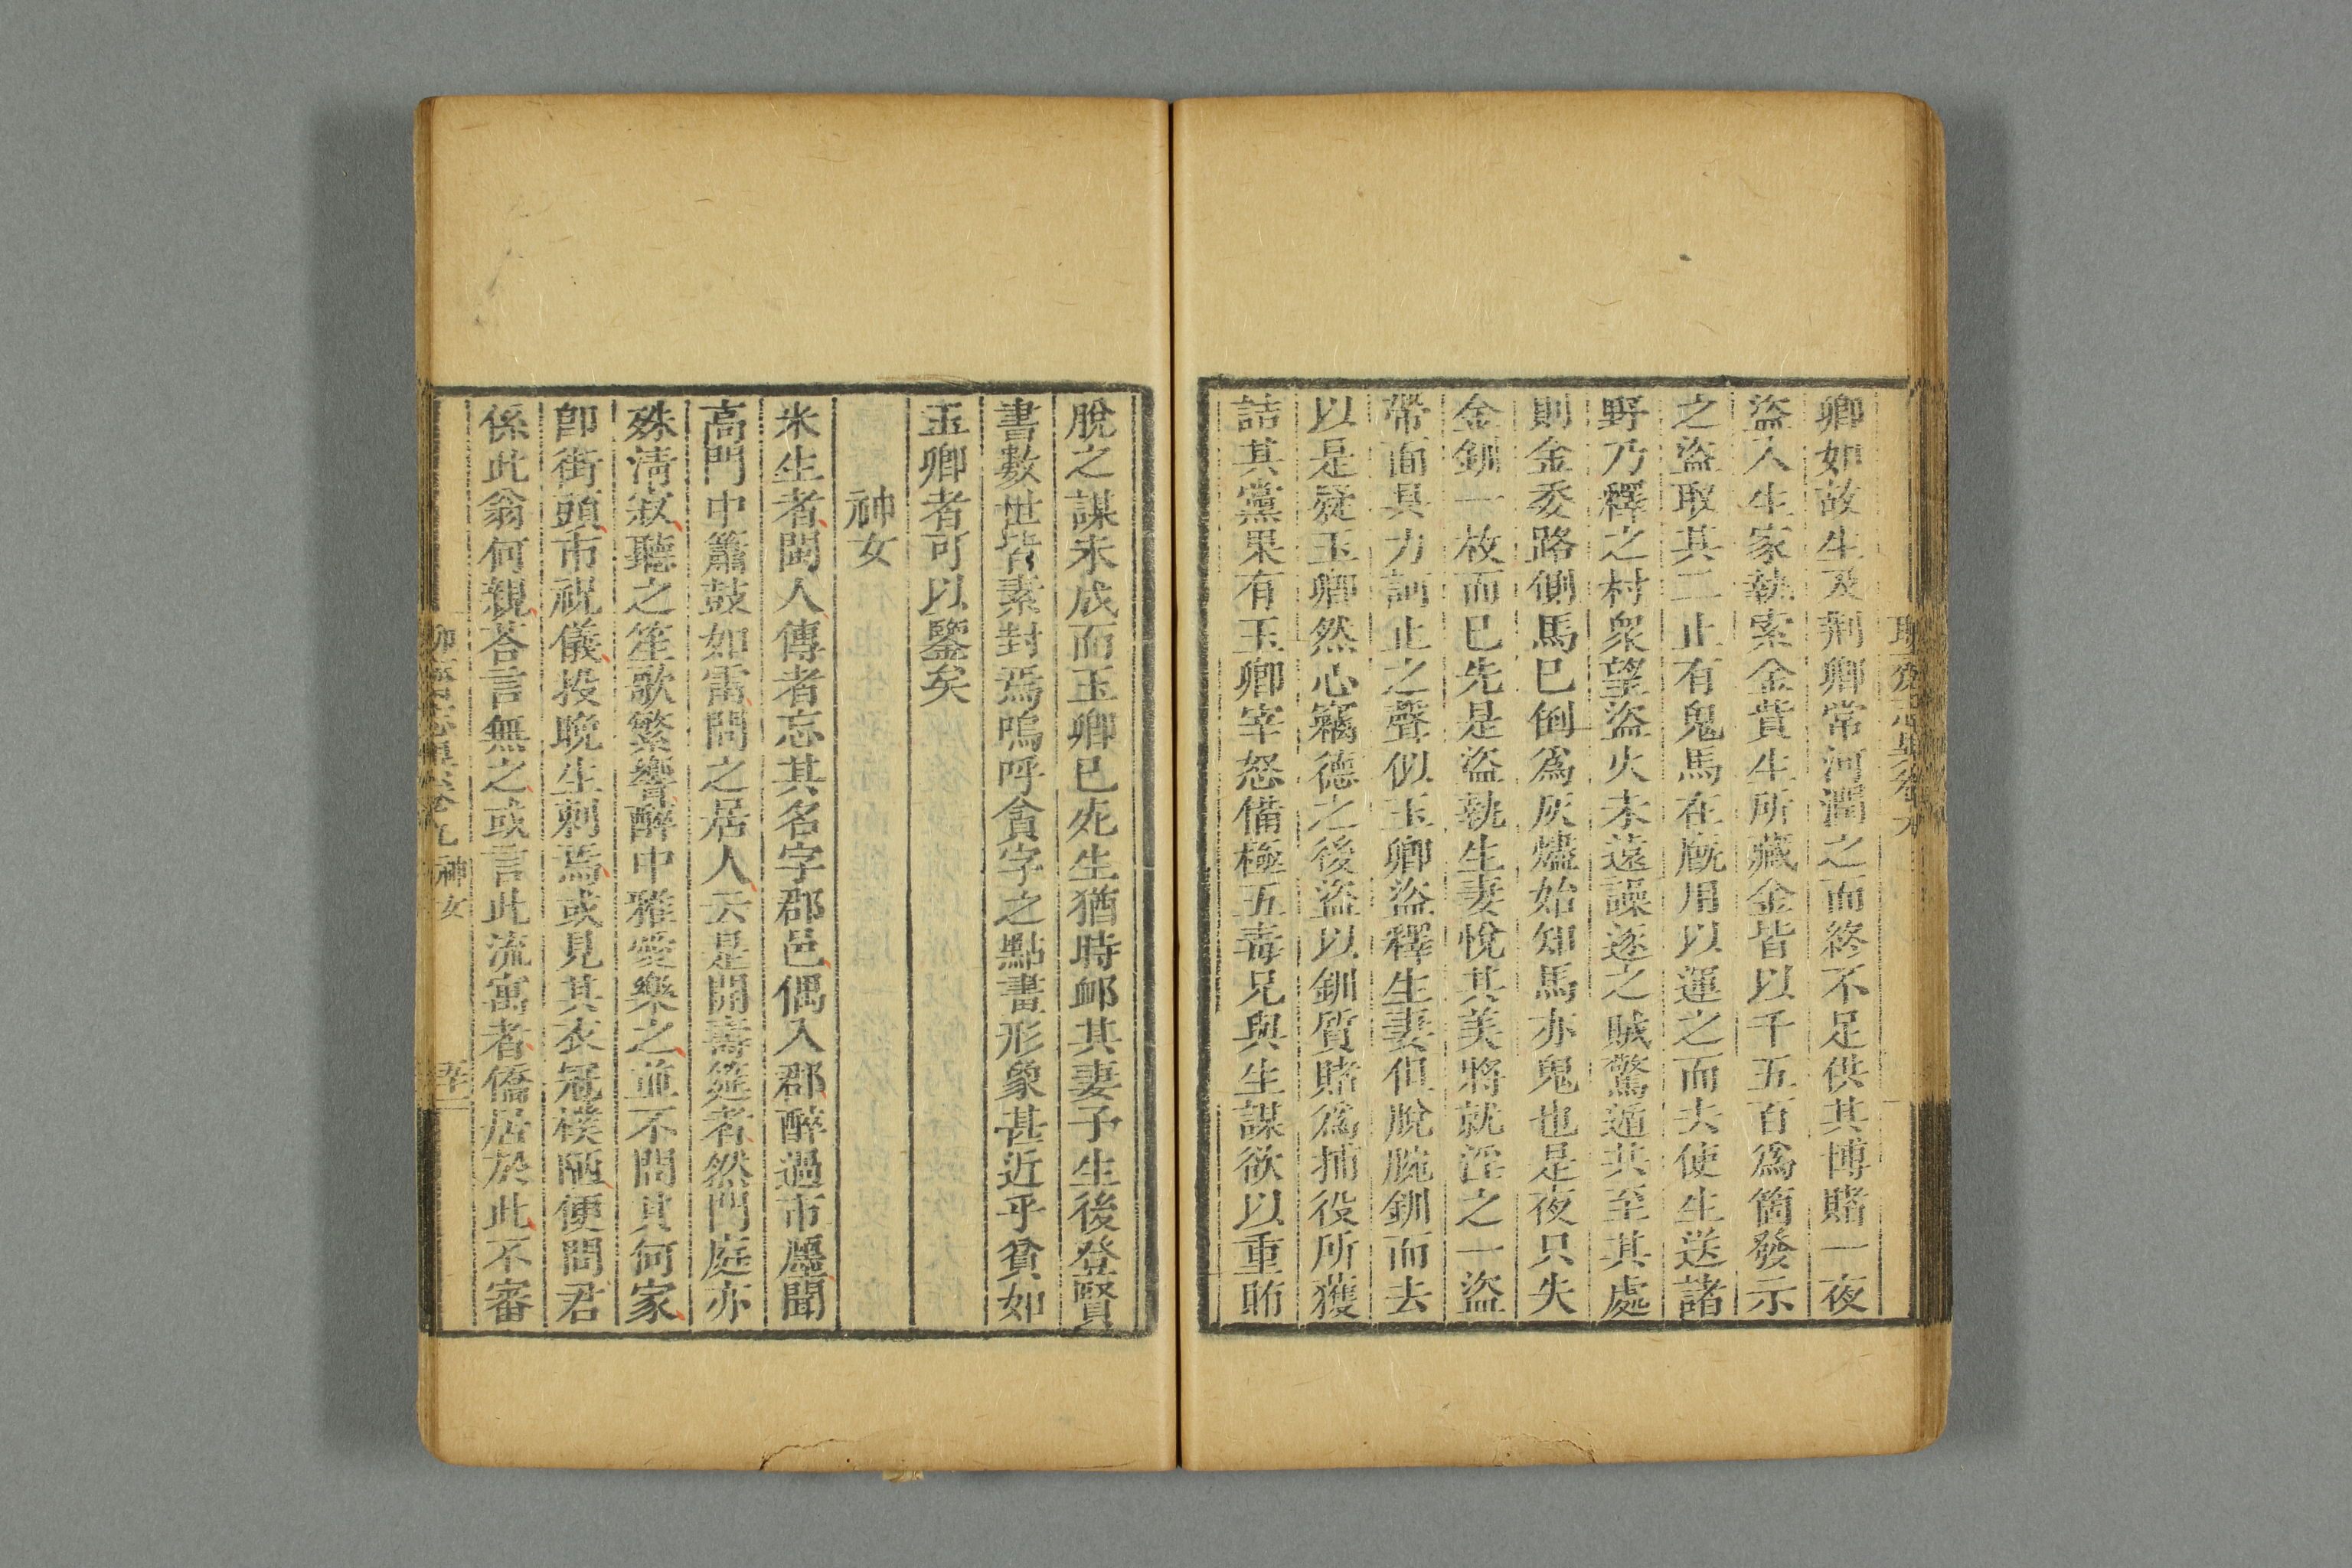 卿如故生及荆卿常河潤之而終不足供其博賭一夜
盜入生家執索金貲生所藏金皆以千五百爲箇發示
之盜取其二止有鬼馬在廐用以運之而去使生送諸
野乃釋之村衆望盜火未遠譟逐之賊驚遁共至其處
則金委路側馬已倒爲灰燼始知馬亦鬼也是夜只失
金釧一枚而已先是盜執生妻悅其美將就淫之一盜
帶面具力訶止之聲似玉卿盜釋生妻但脫腕釧而去
以是疑玉卿然心竊德之後盜以釧質賭爲捕役所獲
詰其黨果有玉卿宰怒備極五毒兄與生謀欲以重賄
脫之謀未成而玉卿已死生猶時邺其妻子生後登賢
書數世皆素封焉嗚呼貪字之點畫形象甚近乎貧如
玉卿者可以鑒矣
神女
米生者閩人傳者忘其名字郡邑偶入郡醉過市廛聞
高門中簫鼓如雷問之居人云是開壽筵者然門庭亦
殊清寂聽之笙歌繁響醉中雅愛樂之並不問其何家
卽街頭市祝儀投晚生刺焉或見其衣冠樸陋便問君
係此翁何親荅言無之或言此流寓者僑居於此不審
神女